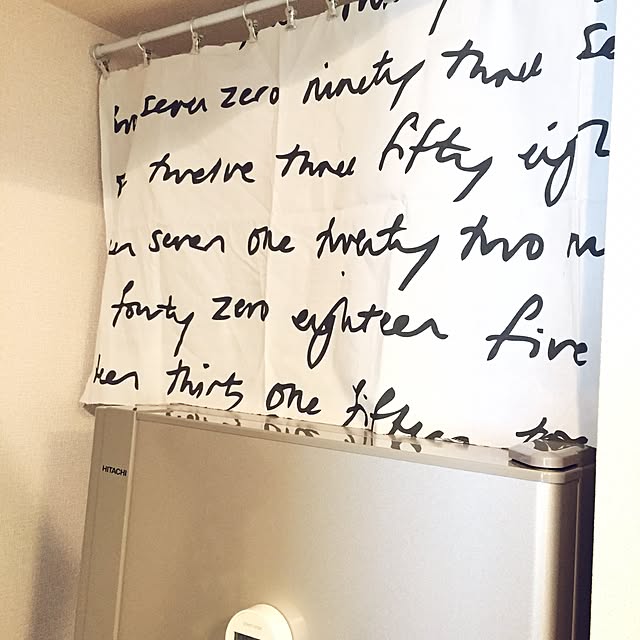 seven zero ninety three se
twelve three fifty eigh
en seven one twenty two n
fourty zero eighteen five
teen thirty one fifteen
HITACHI